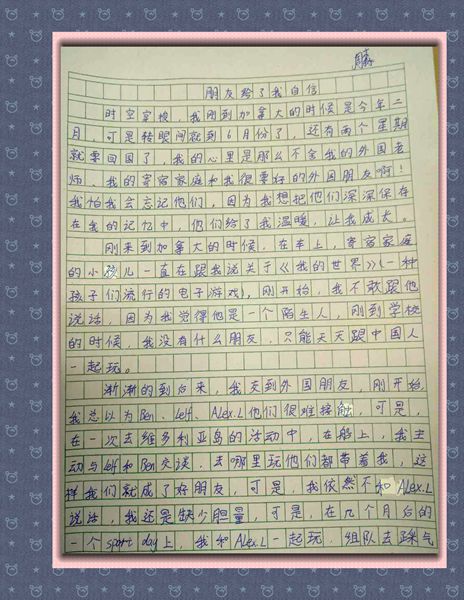 朋友给了我自信
时空穿梭,我刚到加拿大的时候是今年二
月,可是转眼间就到6月份了,还有两个星期
就要回国了,我的心里是那么不舍我的外国老
师、我的寄宿家庭和我很要好的外国朋友啊!
我怕我会忘记他们,因为我想把他们深深保存
在我的记忆中,他们给了我温暖,让我成长。
刚来到加拿大的时候,在车上,寄宿家庭
的小孩儿一直在跟我说关于《我的世界》(一种
孩子们流行的电子游戏),刚开始,我不敢跟他
说话,因为我觉得他是一个陌生人,刚到学校
的时候,我没有什么朋友,只能天天跟中国人
一起玩。
渐渐的到后来,我交到外国朋友,刚开始,
我总以为Ben、Leif、Alex.L他们很难接触,可是,
在一次去维多利亚岛的活动中,在船上,我主
动与Leif和Ben交谈,去哪里玩他们都带着我,这
样我们就成了好朋友,可是,我依然不和Alex.L
说话,我还是缺少胆量,可是,在几个月后的
一个sport day上,我和Alex.L一起玩,组队去踩气